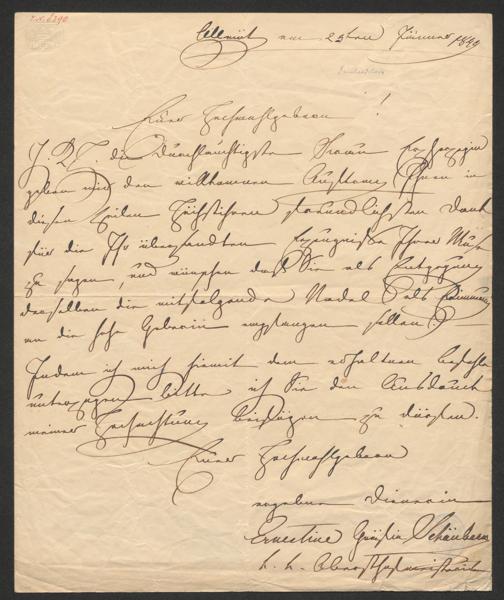 Ollmütz am 23ten Jänner 1849
Euer Hochwohlgeboren!
I. K. H. die Durchlauchtigste Frau Erzherzogin
geben mir den willkommenen Auftrag Ihnen in
diesen Zeilen Höchstihren freundlichsten Dank
für die Ihr übersandten Erzeugnisse Ihrer Muse
zu sagen, und wünschen daß Sie als Entgegnung
derselben die mitfolgende Nadel als Erinnerung
an die hohe Geberin empfangen sollen.
Indem ich mich hiemit dem erhaltenen Befehle
unterziehe, bitte ich Sie den Ausdruck
meiner Hochachtung beifügen zu dürfen.
Euer Hochwohlgeboren
ergebene Dienerin
Ernestine Gräfin Schönborn
k. k. Obersthofmeisterin